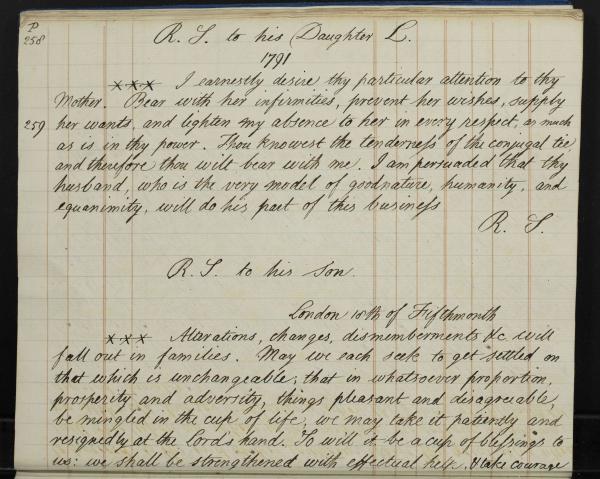 P
258
R. S. to his Daughter L.
1791
x x x I earnestly desire thy particular attention to thy
Mother. Bear with her infirmities, prevent her wishes, supply
259 her wants, and lighten my absence to her in every respect, as much
as is in thy power. Thou knowest the tenderness of the conjugal tie
and therefore thou wilt bear with me. I am persuaded that thy
husband, who is the very model of goodnature, humanity, and
equanimity, will do his part of this business
R. S.
R. S. to his Son.
London 18th of Fifthmonth
x x x Alterations, changes, dismemberments &c. will
fall out in families. May we each seek to get settled on
that which is unchangeable; that in whatsoever proportion,
prosperity and adversity, things pleasant and disagreeable,
be mingled in the cup of life, we may take it patiently and
resignedly at the Lords hand. So will it be a cup of blessings to
us: we shall be strengthened with effectual help, & take courage